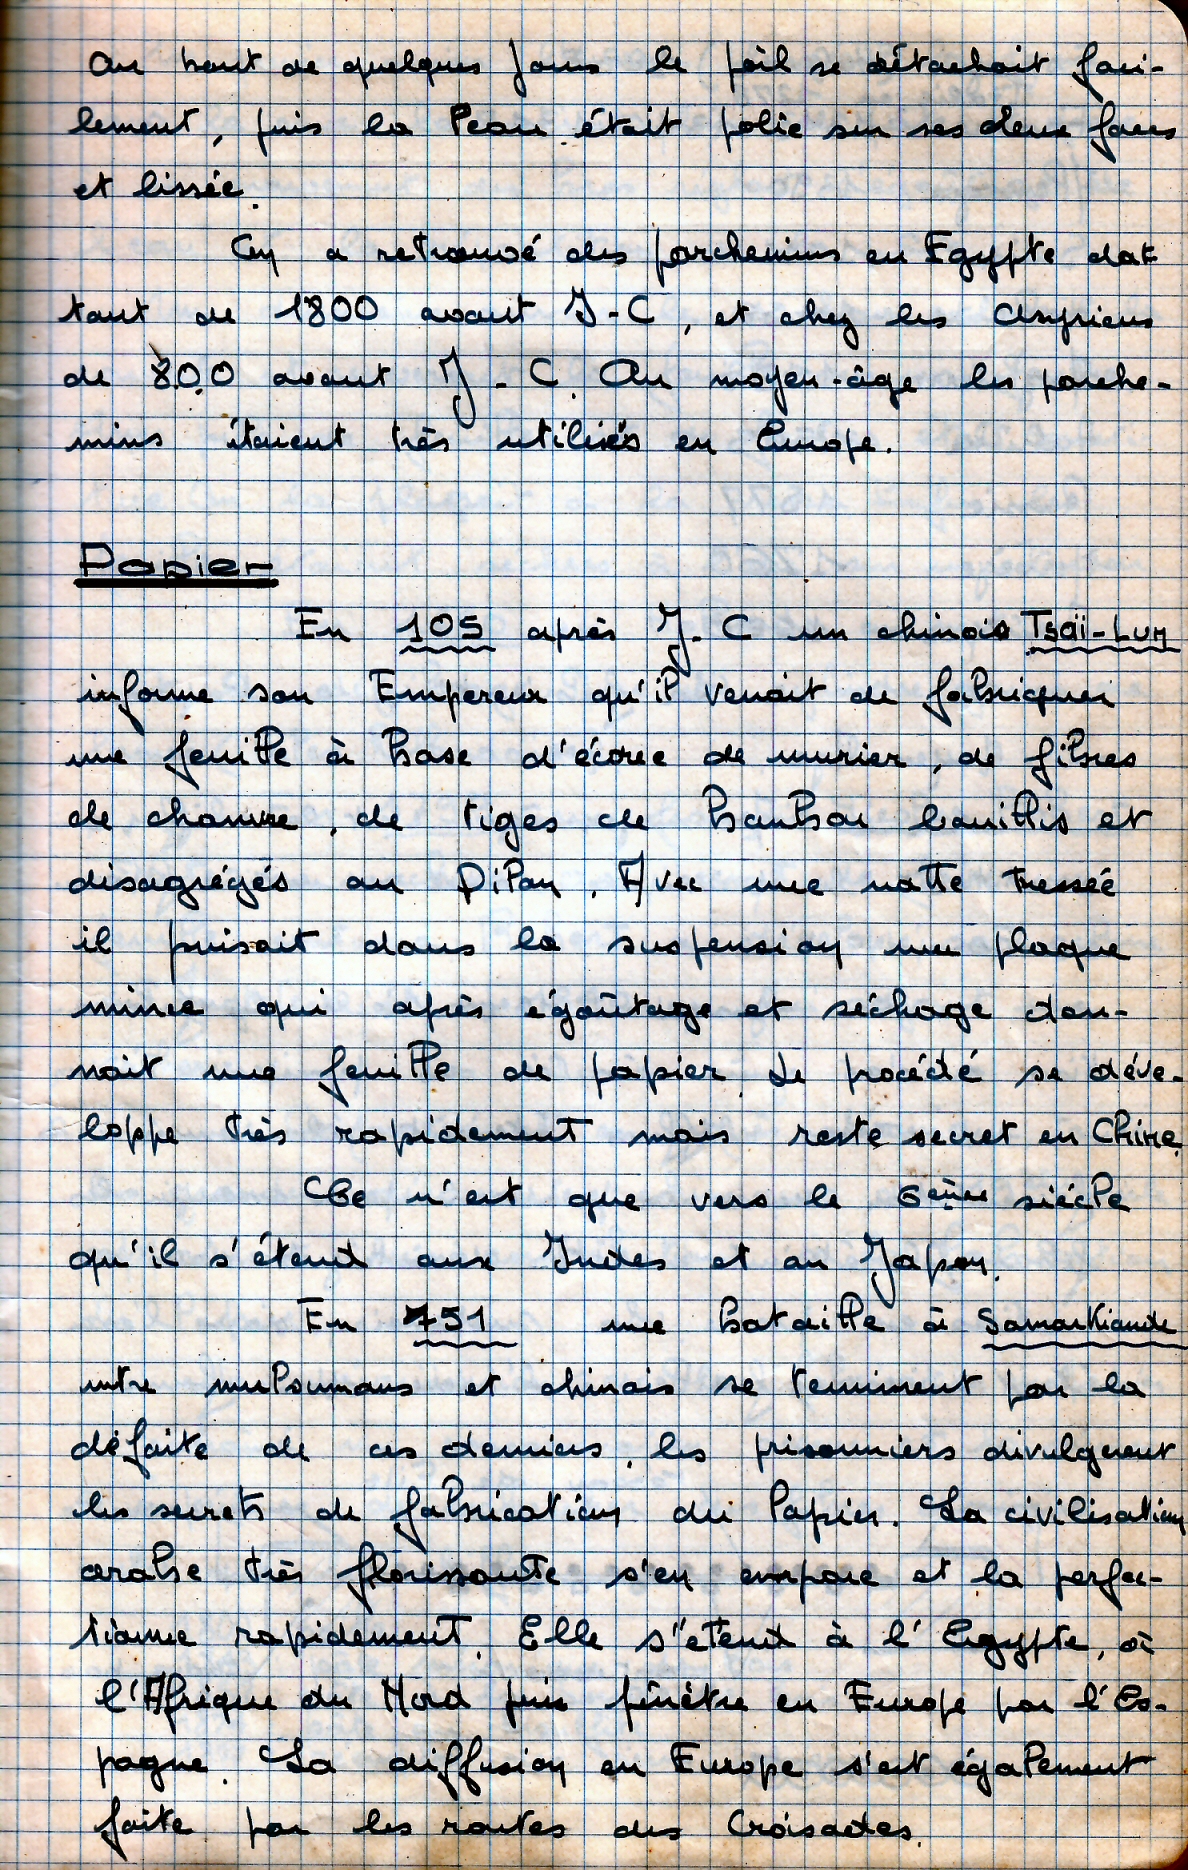 Au bout de quelques jours le poil se détachait faci-
lement, puis la Peau était polie sur ses deux faces
et lissée.
On a retrouvé des parchemins en Egypte dat
tant de 1800 avant J-C, et chez les Assyriens
de 800 avant J-C. Au moyen-âge les parche-
mins étaient très utilisés en Europe.
Papier
En 105 après J-C un chinois Tsaï-Lun
informe son Empereur qu'il venait de fabriquer
une feuille à base d'écorce de murier, de fibres
de chanvre, de tiges de bambou bouillis et
désagrégés au pilon. Avec une natte tressée
il puisait dans la suspension une plaque
mince qui après égoûtage et séchage don-
nait une feuille de papier. Le procédé se déve-
loppe très rapidement mais reste secret en Chine.
Ce n'est que vers le 6ème siècle
qu'il s'étend aux Indes et au Japon.
En 751 une bataille à Samarkiande
entre mulsumans et chinois se terminent par la
défaite de ces derniers, les prisonniers divulguent
les secrets de fabrication du Papier. La civilisation
arabe très florissante s'en empare et la perfec-
tionne rapidement. Elle s'étend à l'Egypte, à
l'Afrique du Nord puis pénètre en Europe par l'Es-
pagne. La diffusion en Europe s'est également
faite par les routes des Croisades.